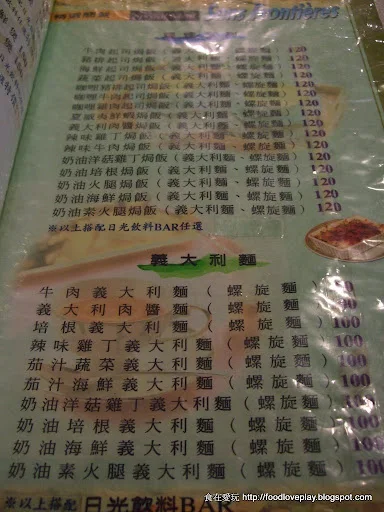 Sans Frontières
牛肉起司焗飯(義大利麵、螺旋麵) 120
豬排起司焗飯(義大利麵、螺旋麵) 120
海鮮起司焗飯(義大利麵、螺旋麵) 120
蔬菜起司焗飯(義大利麵、螺旋麵) 120
咖哩豬排起司焗飯(義大利麵、螺旋麵) 120
咖哩牛肉起司焗飯(義大利麵、螺旋麵) 120
咖哩雞肉起司焗飯(義大利麵、螺旋麵) 120
夏威夷鮮蝦焗飯(義大利麵、螺旋麵) 120
義大利肉醬焗飯(義大利麵、螺旋麵) 120
辣味雞丁焗飯(義大利麵、螺旋麵) 120
辣味牛肉焗飯(義大利麵、螺旋麵) 120
奶油洋菇雞丁焗飯(義大利麵、螺旋麵) 120
奶油培根焗飯(義大利麵、螺旋麵) 120
奶油火腿焗飯(義大利麵、螺旋麵) 120
奶油海鮮焗飯(義大利麵、螺旋麵) 120
奶油素火腿焗飯(義大利麵、螺旋麵) 120
※以上搭配日光飲料BAR任選
義大利麵
牛肉義大利麵(螺旋麵)
義大利肉醬麵(螺旋麵) 100
培根義大利麵(螺旋麵) 100
辣味雞丁義大利麵(螺旋麵) 100
茄汁蔬菜義大利麵(螺旋麵) 100
茄汁海鮮義大利麵(螺旋麵) 100
奶油洋菇雞丁義大利麵(螺旋麵) 100
奶油培根義大利麵(螺旋麵) 100
奶油海鮮義大利麵(螺旋麵) 100
奶油素火腿義大利麵(螺旋麵) 100
※以上搭配日光飲料BAR
食在愛玩 http://foodloveplay.blogspot.com